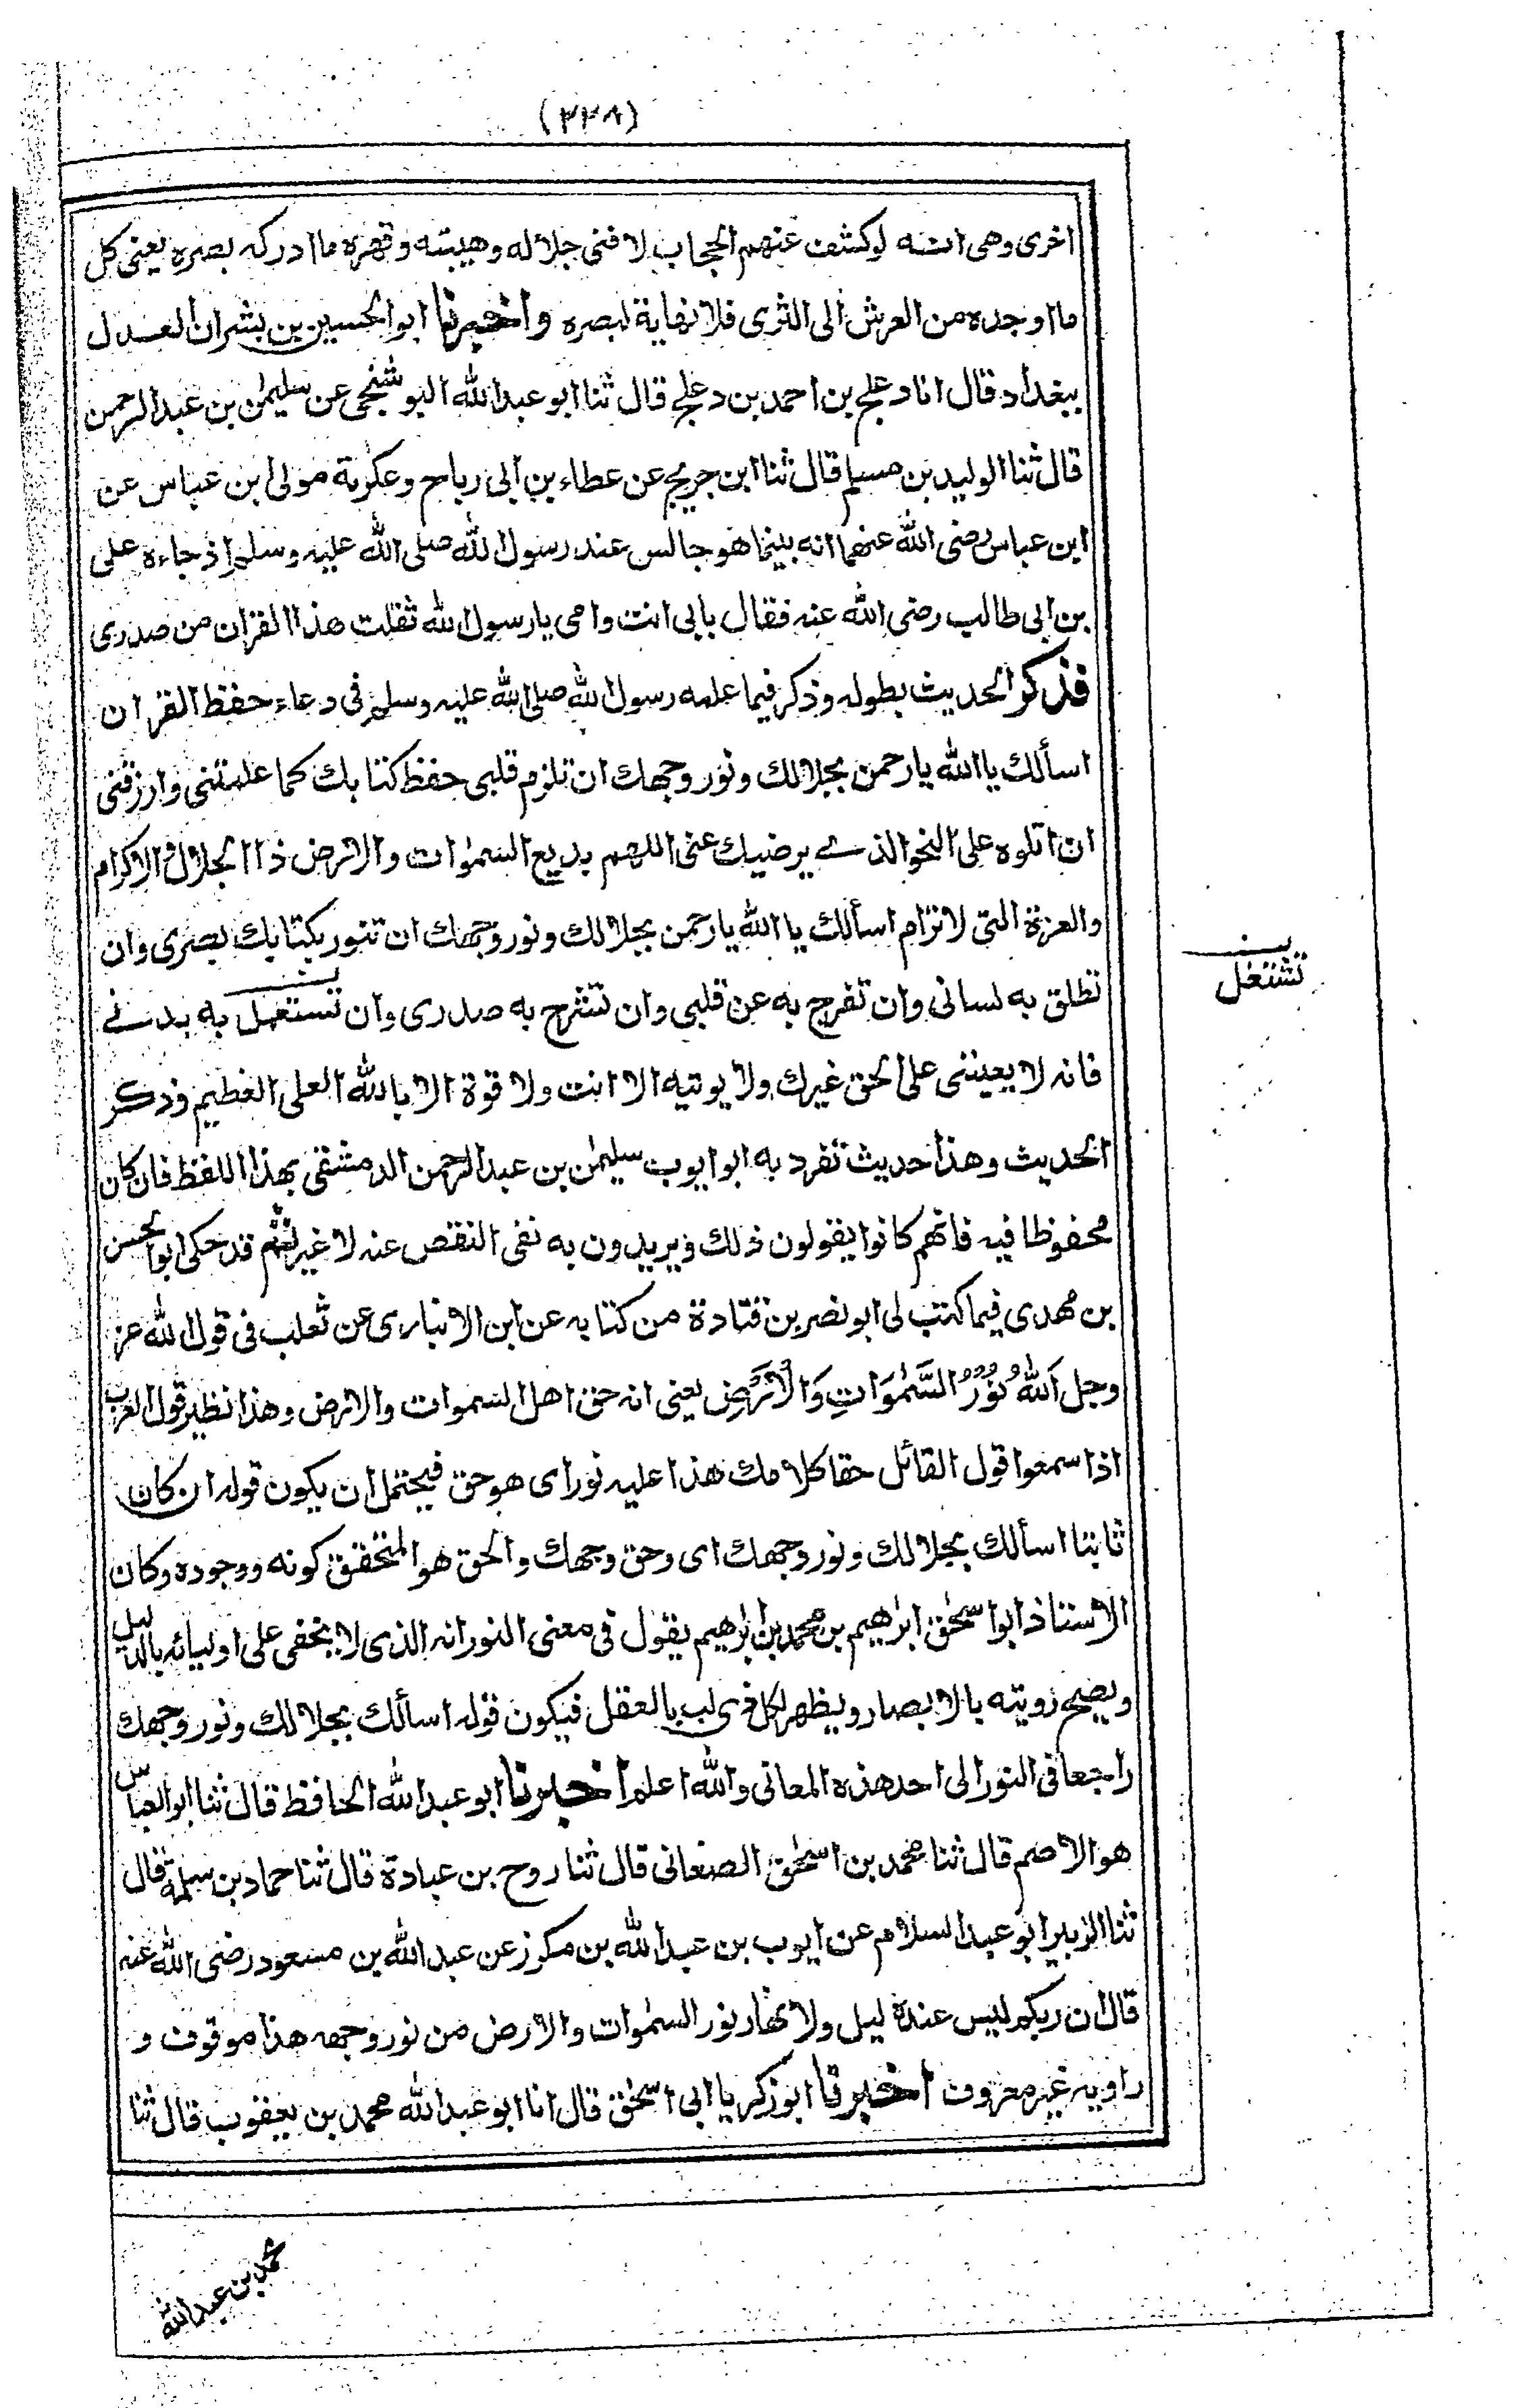 (٢٢٨)
اخرى وهى انه لوكشف عنهم الحجاب لافنى جلاله وهيبته وقهره ماادركه بصره يعنى كل
مااوجده من العرش الى الثرى فلانهاية لبصره واخبرنا ابوالحسين بن بشران العدل
ببغداد قال انا دعلج بن احمد بن دعلج قال ثنا ابو عبدالله البوشنجى عن سليمٰن بن عبدالرحمن
قال ثنا الوليد بن مسلم قال ثنا ابن جريج عن عطاء بن ابى رباح وعكرمة مولى ابن عباس عن
ابن عباس رضى الله عنهما انه بينما هو جالس عند رسول الله صلى الله عليه وسلم اذ جاءه على
بن ابى طالب رضى الله عنه فقال بابى انت وامى يارسول الله تفلت هذا القران من صدرى
فذكر الحديث بطوله وذكر فيما علمه رسول الله صلى الله عليه وسلم فى دعاء حفظ القران
اسألك ياالله يارحمن بجلالك ونور وجهك ان تلزم قلبى حفظ كتابك كما علمتنى وارزقنى
ان اتلوه على النحو الذے يرضيك عنى اللهم بديع السمٰوات والارض ذا الجلال والاكرام
والعزة التى لاترام اسألك يا الله يارحمن بجلالك ونور وجهك ان تنور بكتابك بصرى وان
تطلق به لسانى وان تفرج به عن قلبى وان تشرح به صدرى وان تستعمل به بدنے
تشتغل
فانه لايعيننى على الحق غيرك ولا يوتيه الا انت ولا قوة الا بالله العلى العظيم وذكر
الحديث وهذا حديث تفرد به ابو ايوب سليمٰن بن عبدالرحمن الدمشقى بهذا اللفظ فان كان
محفوظا فيه فانهم كانوا يقولون ذلك ويريدون به نفى النقص عنه لا غير ثم قد حكى ابوالحسن
بن مهدى فيما كتب لى ابونصر بن قتادة من كتابه عن ابن الانبارى عن ثعلب فى قول الله عز
وجل اَللهُ نُوْرُ السَّمٰوَاتِ وَالْاَرْضِ يعنى انه حق اهل السموات والارض وهذا نظير قول العرب
اذا سمعوا قول القائل حقا كلامك هذا عليه نور اى هو حق فيحتمل ان يكون قوله ان كان
ثابتا اسألك بجلالك ونور وجهك اى وحق وجهك والحق هو المتحقق كونه ووجوده وكان
الاستاذ ابو اسحٰق ابرٰهيم بن محمد بن ابرٰهيم يقول فى معنى النور انه الذى لا يخفى على اوليائه بالدليل
ويصح رويته بالابصار ويظهر لكل ذى لب بالعقل فيكون قوله اسألك بجلالك ونور وجهك
راجعا فى النور الى احد هذه المعانى والله اعلم اخبرنا ابو عبدالله الحافظ قال ثنا ابوالعباس
هو الاصم قال ثنا محمد بن اسحٰق الصغانى قال ثنا روح بن عبادة قال ثنا حماد بن سلمة قال
ثنا الزبير ابو عبدالسلام عن ايوب بن عبدالله بن مكرز عن عبدالله بن مسعود رضى الله عنه
قال ان ربكم ليس عنده ليل ولا نهار نور السمٰوات والارض من نور وجهه هذا موقوف و
راويه غير معروف اخبرنا ابوزكريا ابى اسحٰق قال انا ابو عبدالله محمد بن يعقوب قال ثنا
محمد بن عبدالله